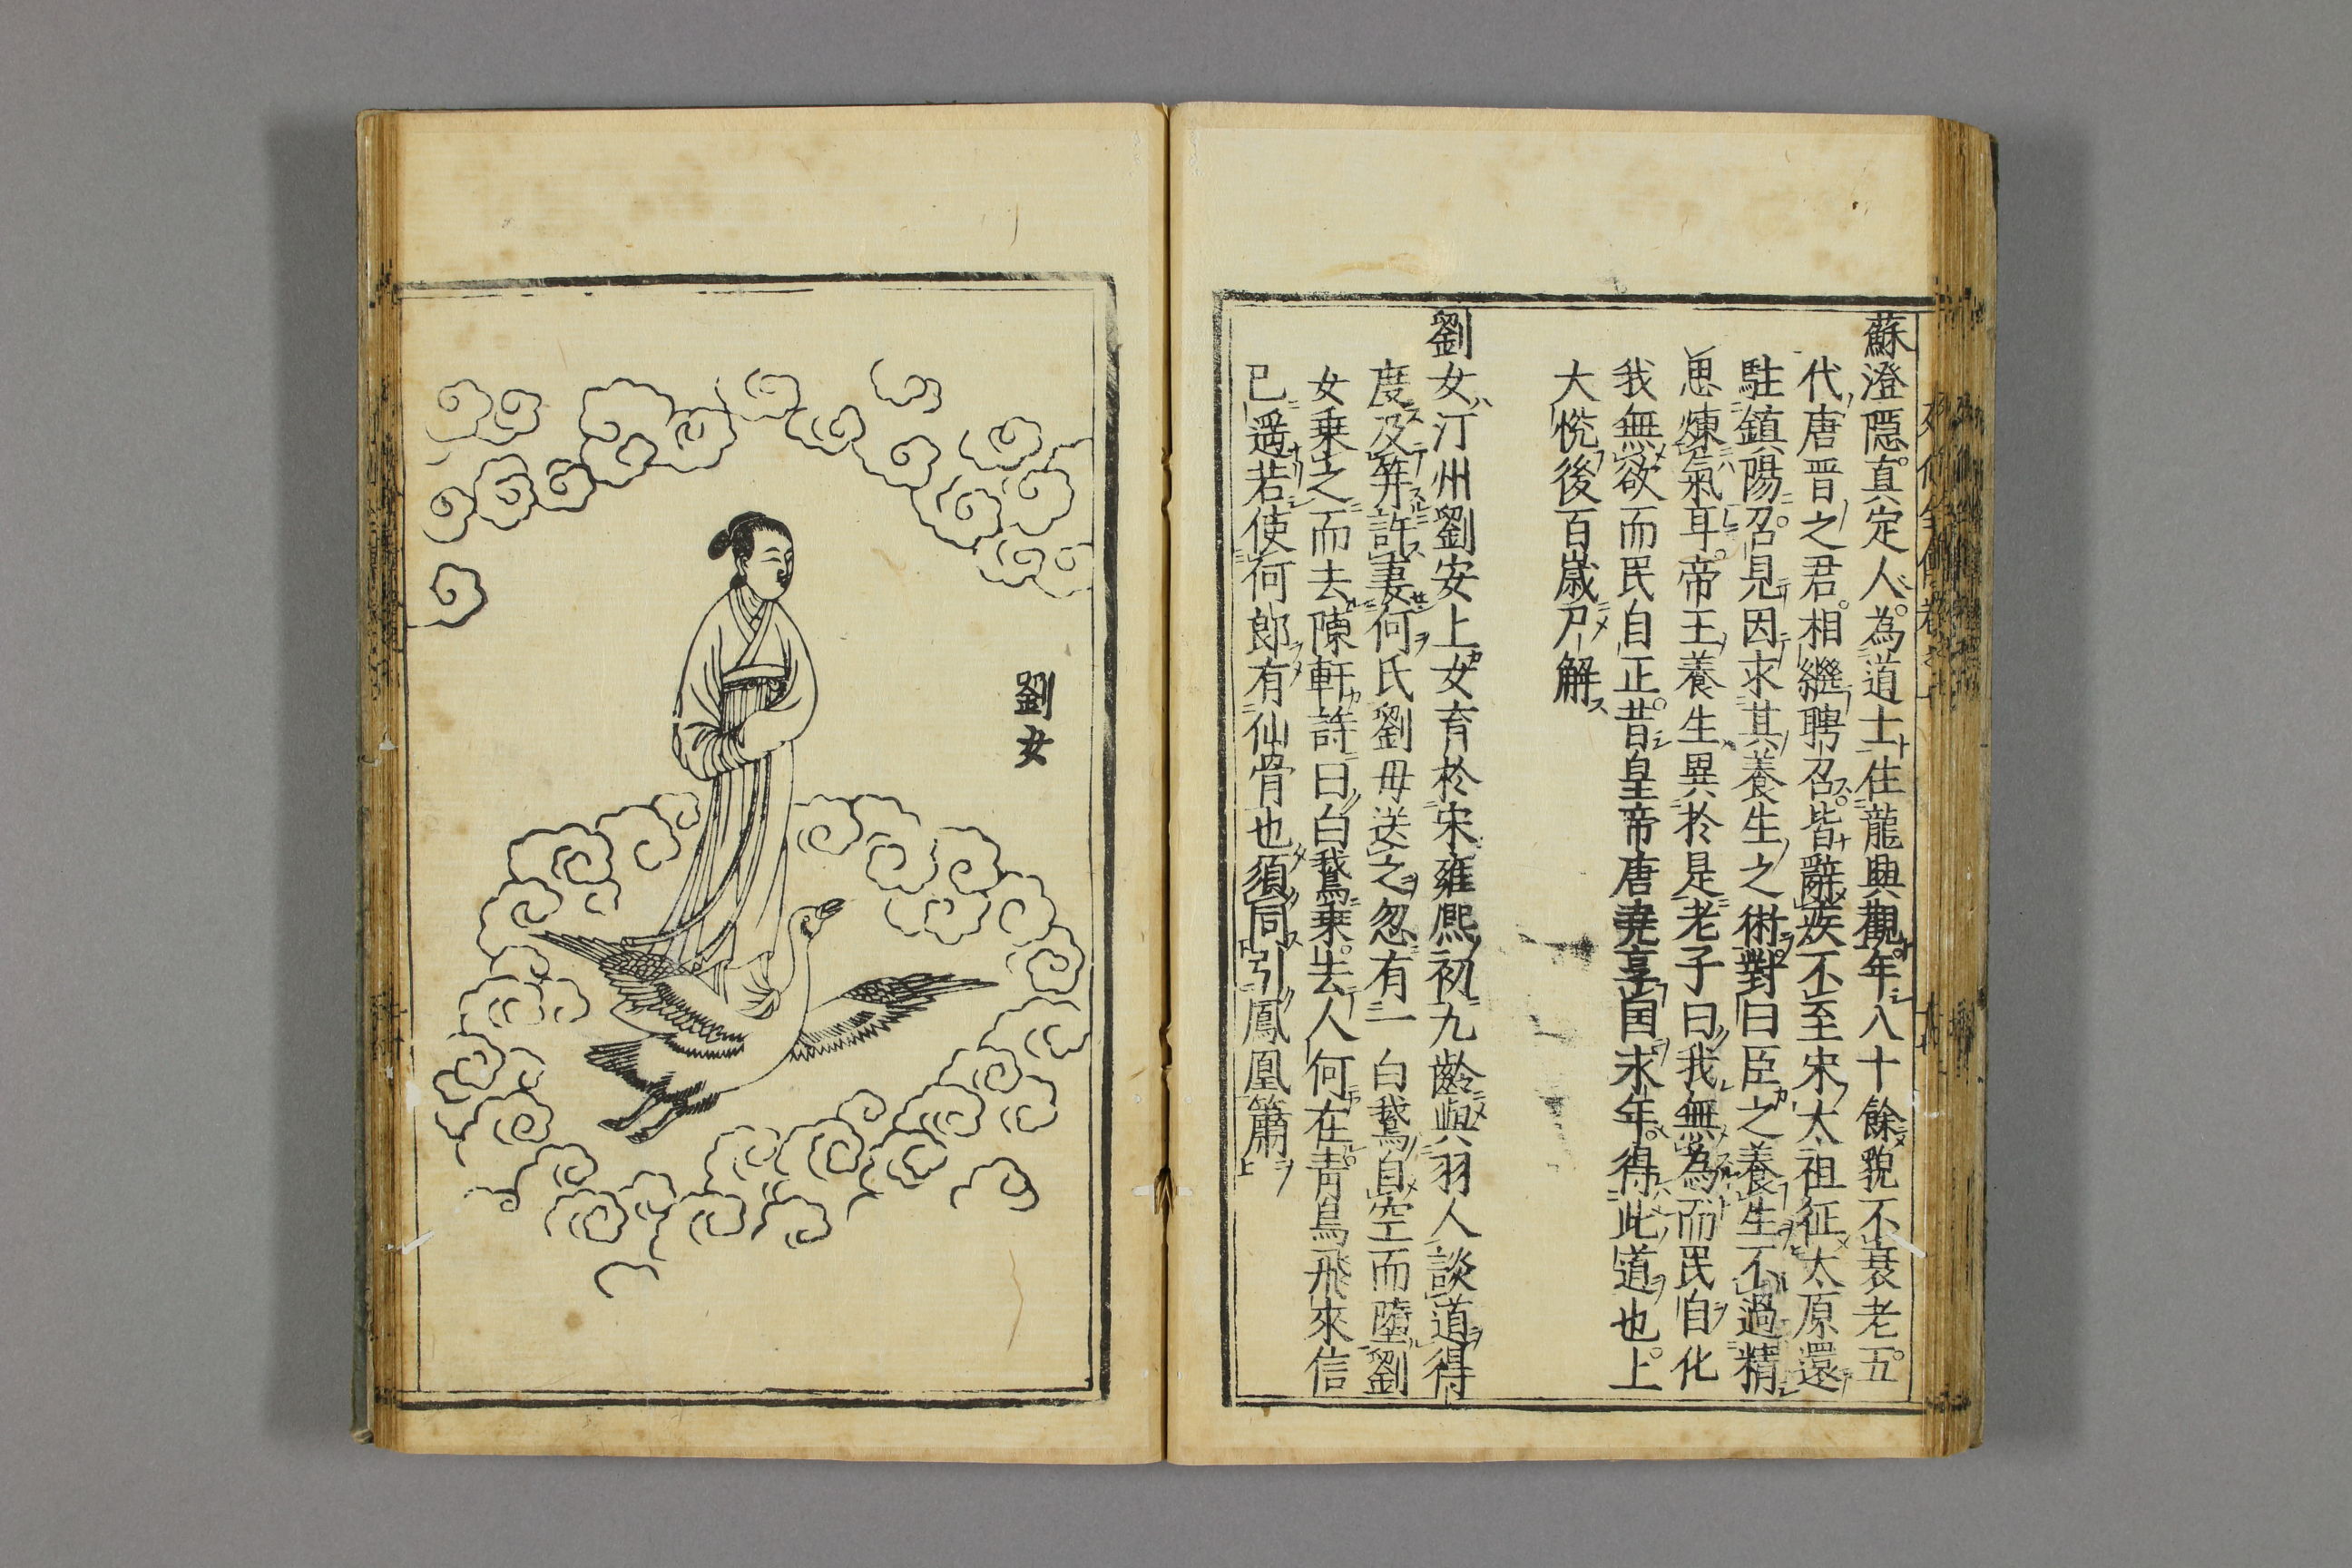 蘇澄隠真定人為道士住龍興觀年八十餘貌不衰老五
代唐晋之君相繼聘召皆辭疾不至宋太祖征太原還
駐鎮陽召見因求其養生之術對曰臣之養生不過精
思煉氣耳帝王養生異於是老子曰我無為而民自化
我無欲而民自正昔皇帝唐尭享国永年得此道也上
大悦後百歳尸解
劉女汀州劉安上女育於宋雍熈初九齡與羽人談道得
度及笄許妻何氏劉母送之忽有一白鵞自空而墮劉
女乗之而去陳軒詩曰白鵞乗去人何在青鳥飛來信
已遥若使何郎有仙骨也須同引鳳凰簫
劉女